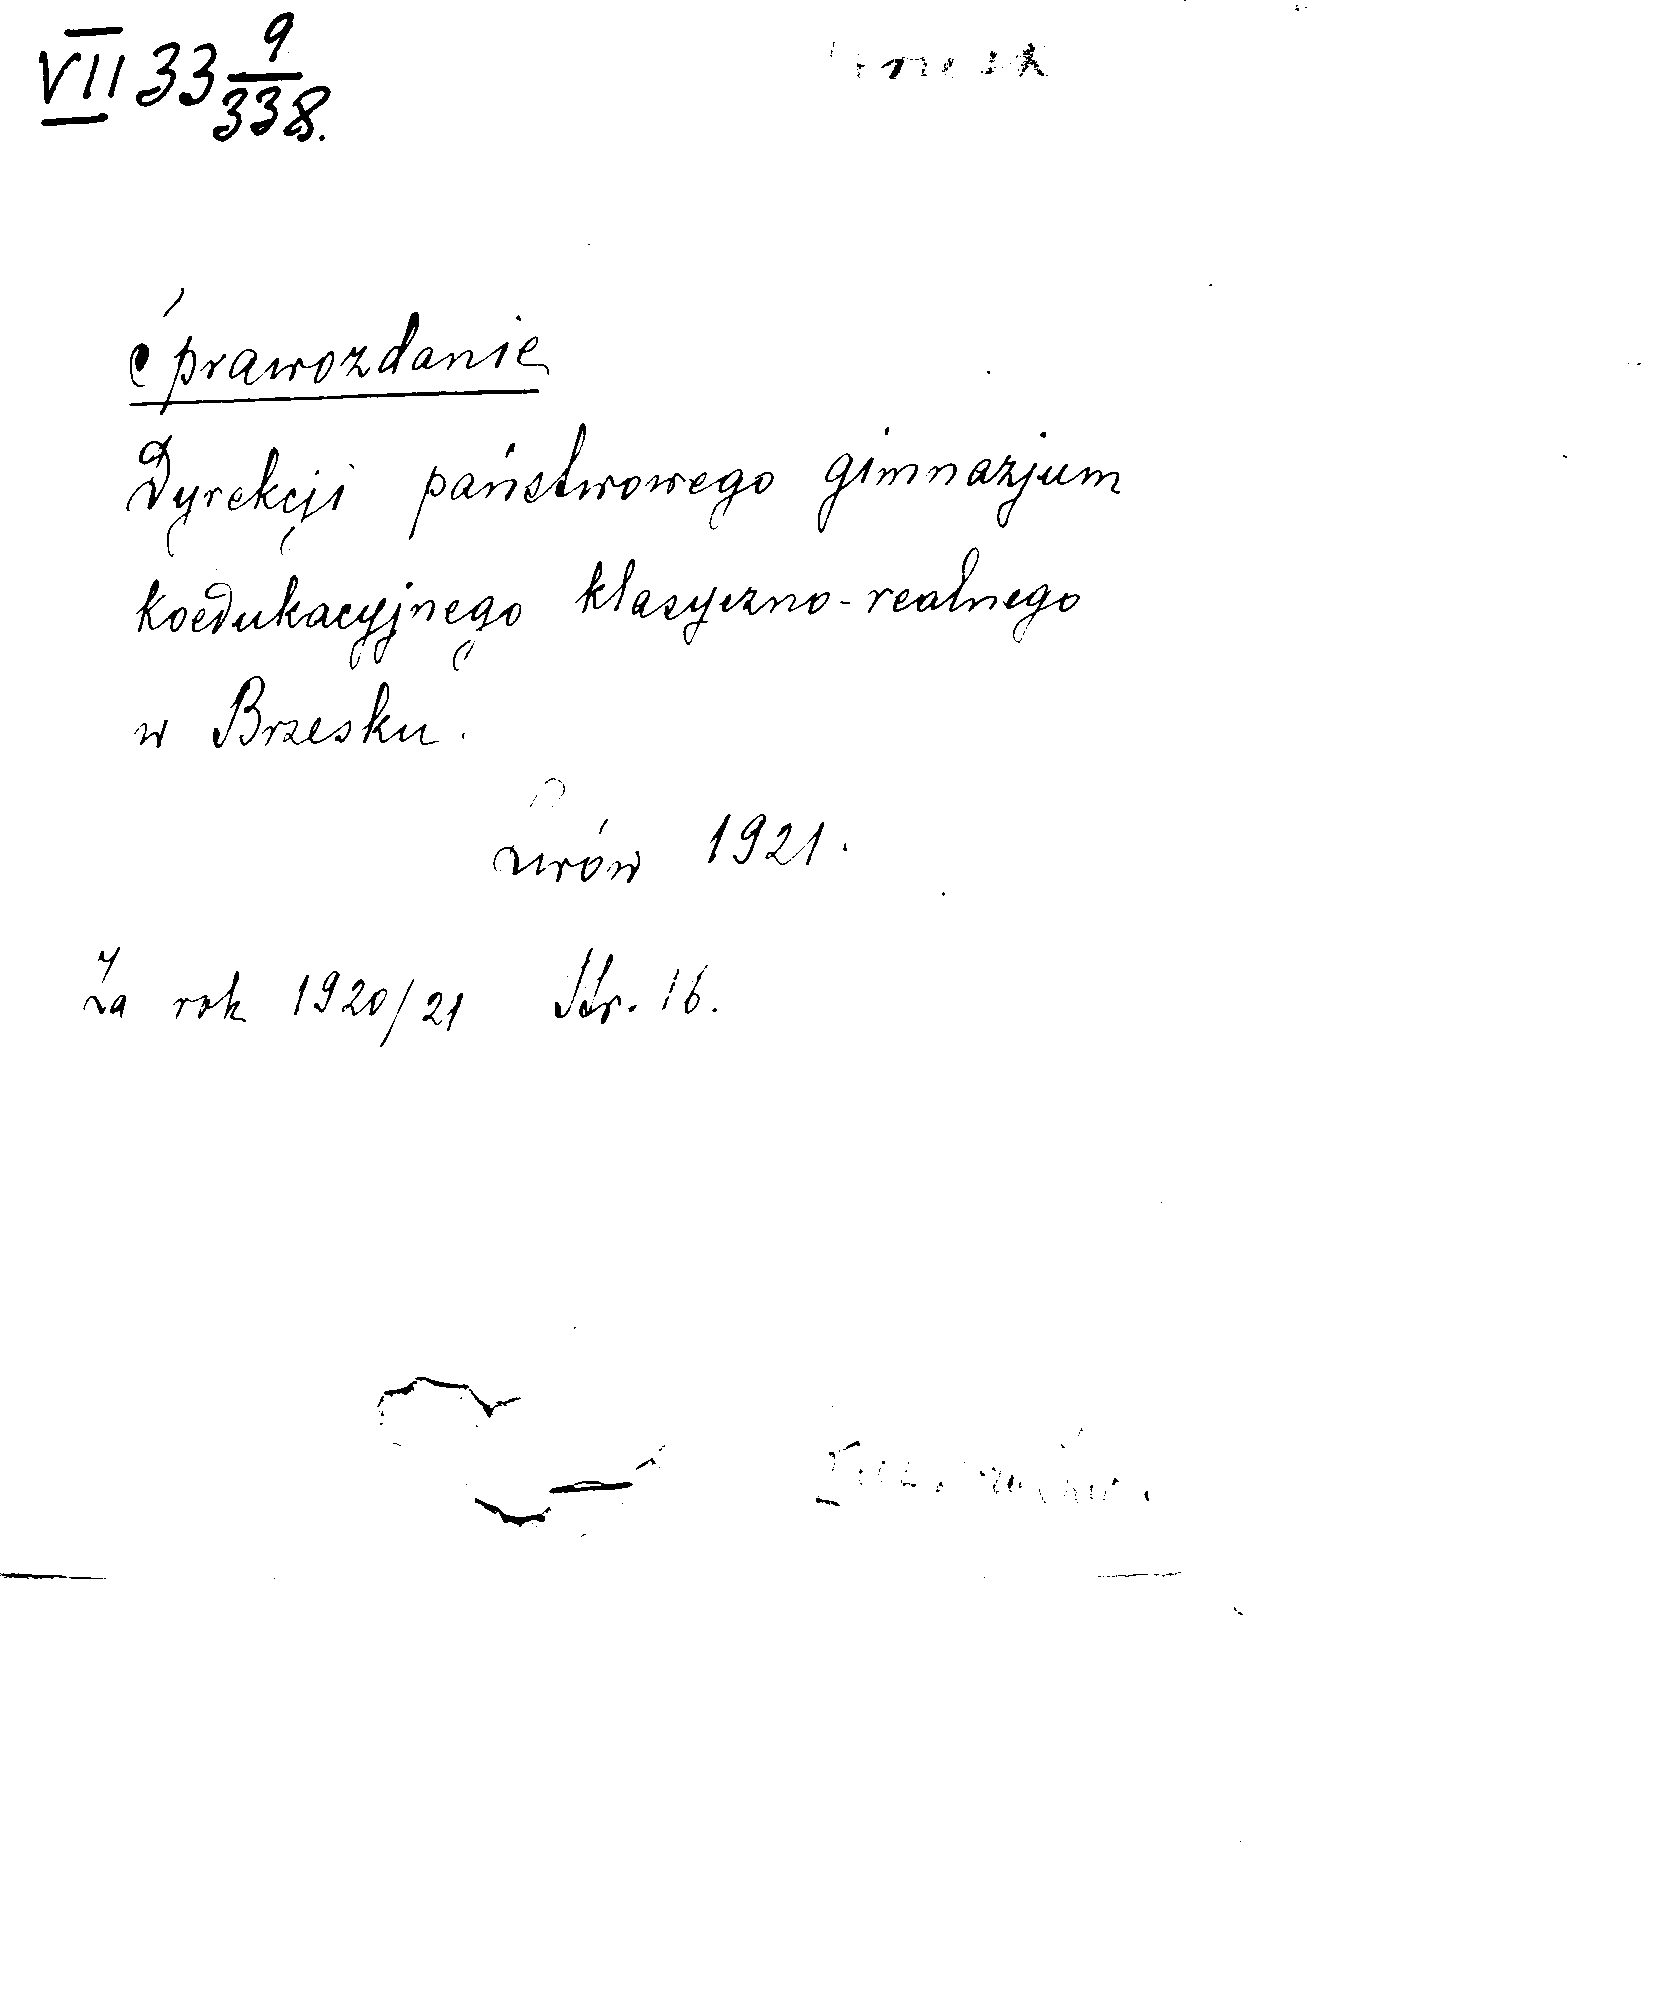 VII 33 9/338.
Sprawozdanie
Dyrekcji państwowego gimnazjum
koedukacyjnego klasyczno-realnego
w Brzesku.
Lwów 1921.
Za rok 1920/21 Str. 16.